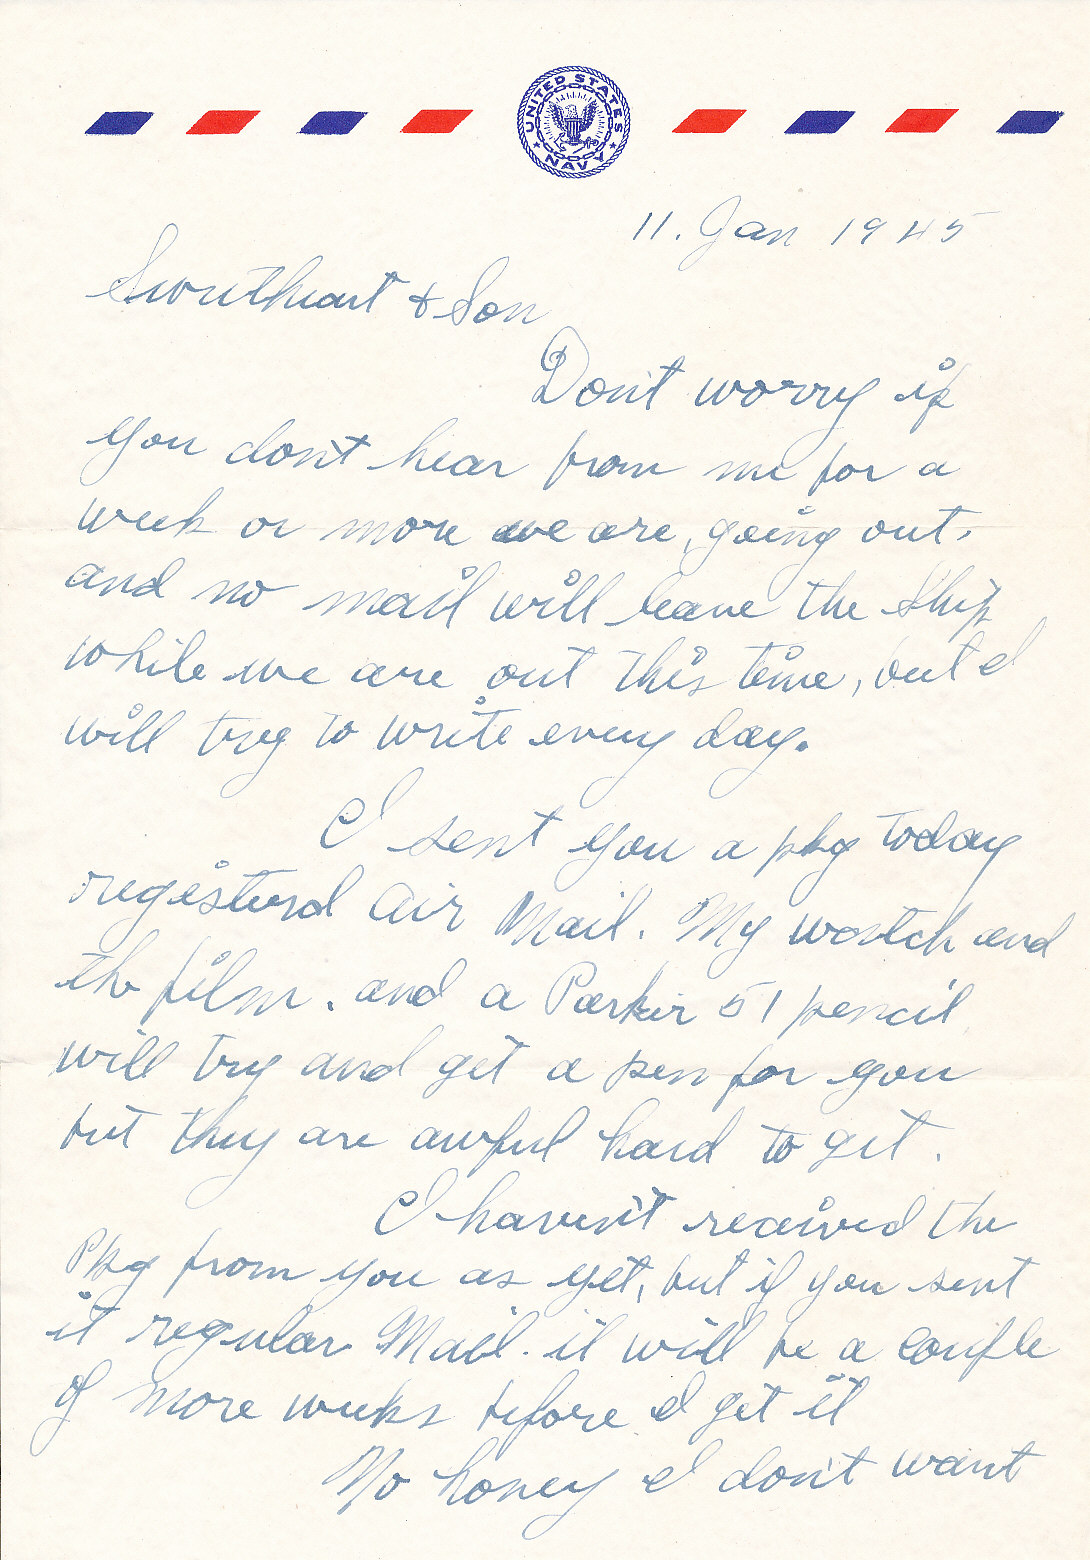 UNITED STATES NAVY
11. Jan 1945
Sweetheart & Son
Don't worry if
you don't hear from me for a
week or more we are, going out.
and no mail will leave the Ship
while we are out this time, but I
will try to write every day.
I sent you a pkg today
registerd Air Mail. My watch and
the film. and a Parker 51 pencil
will try and get a pen for you
but they are awful hard to get.
I haven't received the
Pkg from you as yet, but if you sent
it regular Mail. it will be a couple
of more weeks before I get it
No honey I don't want